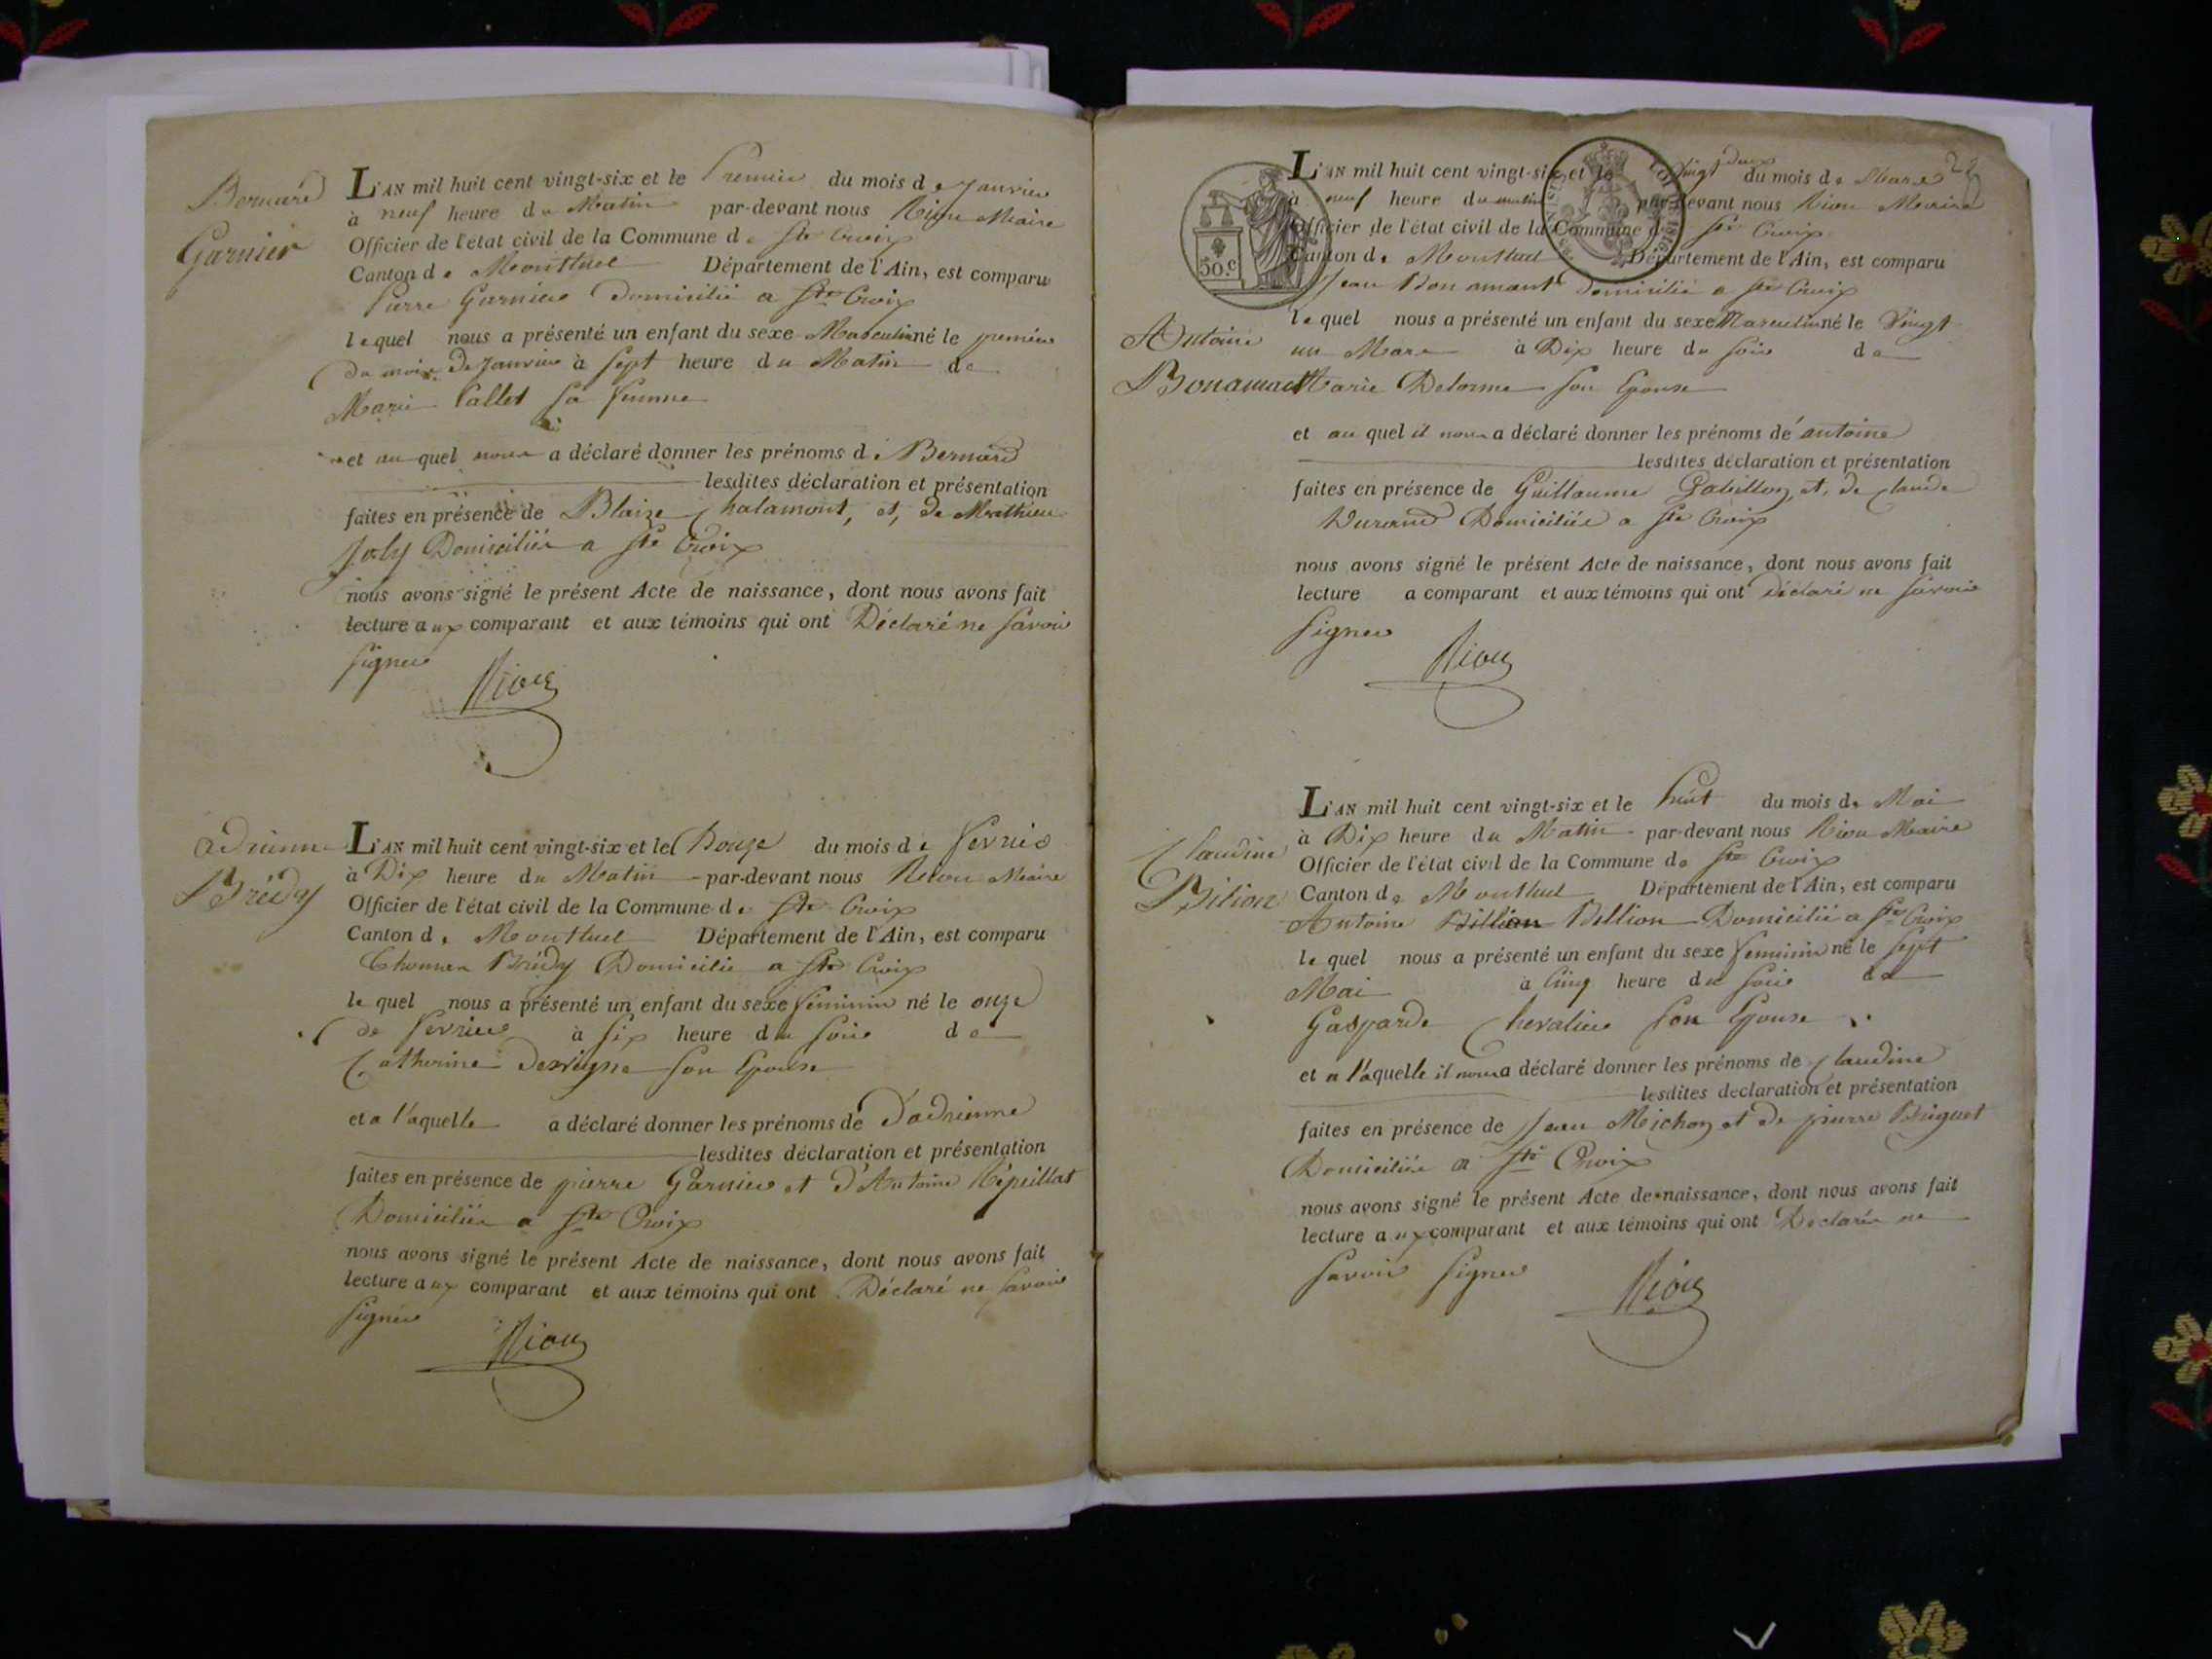 Bernard
Garnier
L'AN mil huit cent vingt-six et le Premier du mois de Janvier
à neuf heure du Matin par-devant nous Riou Maire
Officier de l'état civil de la Commune de Ste Croix
Canton de Montluel Département de l'Ain, est comparu
Pierre Garnier Domicilié a Ste Croix
lequel nous a présenté un enfant du sexe Masculin né le premier
du mois De Janvier à sept heure du Matin de
Marie Pallet sa femme
et au quel nous a déclaré donner les prénoms de Bernard
lesdites déclaration et présentation
faites en présence de Blaize Chalamont, et, de Mathieu
Joly Domiciliés a Ste Croix
nous avons signé le présent Acte de naissance, dont nous avons fait
lecture aux comparant et aux témoins qui ont Déclaré ne savoir
signer
Riou
adrienne
Brédy
L'AN mil huit cent vingt-six et le Douze du mois de Fevrier
à Dix heure du Matin par-devant nous Riou Maire
Officier de l'état civil de la Commune de Ste Croix
Canton de Montluel Département de l'Ain, est comparu
Thomas Brédy Domicilié a Ste Croix
le quel nous a présenté un enfant du sexe féminin né le onze
de Fevrier à six heure du soir de
Catherine son Epouse
et a l'aquelle a déclaré donner les prénoms de D'adrienne
lesdites déclaration et présentation
faites en présence de pierre Garnier et d'Antoine Répeillat
Domiciliés a Ste Croix
nous avons signé le présent Acte de naissance, dont nous avons fait
lecture aux comparant et aux témoins qui ont Déclaré ne savoir
signer
Riou
22
50 c
L'AN mil huit cent vingt-six et le vingt deux du mois de Mars
à neuf heure du matin par-devant nous Riou Maire
Officier de l'état civil de la Commune de Ste Croix
Canton de Montluel Département de l'Ain, est comparu
Jean Bonamant Domicilié a Ste Croix
le quel nous a présenté un enfant du sexe Masculin né le Vingt
un Mars à Dix heure du soir de
Antoine
Bonamant
Marie Delorme son Epouse
et au quel il nous a déclaré donner les prénoms de antoine
lesdites déclaration et présentation
faites en présence de Guillaume Gabillon, et, de Claude
Durand Domiciliés a Ste Croix
nous avons signé le présent Acte de naissance, dont nous avons fait
lecture a comparant et aux témoins qui ont Déclaré ne savoir
signer
Riou
Claudine
Bilion
L'AN mil huit cent vingt-six et le huit du mois de Mai
à Dix heure du Matin par-devant nous Riou Maire
Officier de l'état civil de la Commune de Ste Croix
Canton de Montluel Département de l'Ain, est comparu
Antoine Billion Bellion Domicilié a Ste Croix
le quel nous a présenté un enfant du sexe feminin né le sept
Mai à Cinq heure du soir de
Gasparde Chevalier son Epouse
et a l'aquelle il nous a déclaré donner les prénoms de Claudine
lesdites declaration et présentation
faites en présence de Jean Michon et de pierre Briguet
Domiciliés a Ste Croix
nous avons signé le présent Acte de naissance, dont nous avons fait
lecture aux comparant et aux témoins qui ont Déclarés ne
savoir signer
Riou